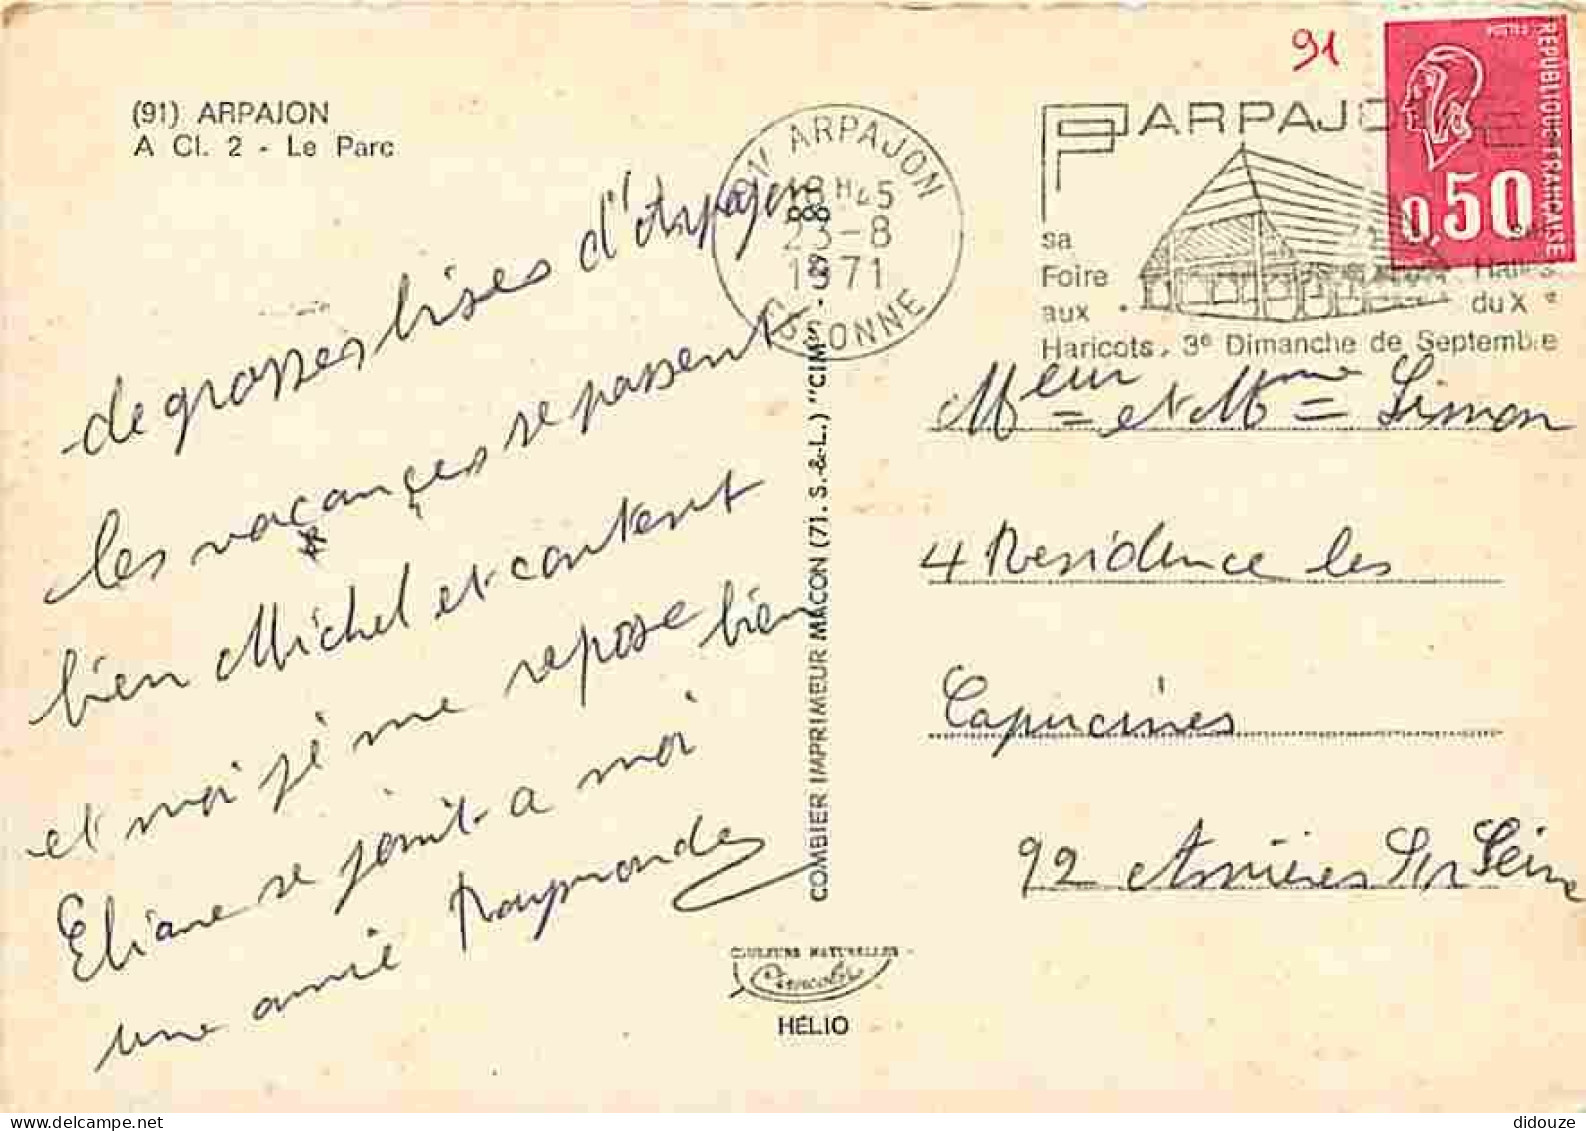 (91) ARPAJON
A Cl. 2 - Le Parc
de grosses bises d'Arpajon
les vacances se passent
bien Michel et content
et moi je me repose bien
Eliane se joint a moi
une amie Raymonde
COMBIER IMPRIMEUR MACON (71. S.-&-L.) "CIM"
COULEURS NATURELLES
Cimcolor
HELIO
91 ARPAJON
18H45
23-8
1971
ESSONNE
91
ARPAJON
sa
Foire
aux
Haricots, 3e Dimanche de Septembre
Halle
du X e
POSTES
REPUBLIQUE FRANCAISE
0,50
Meur et Mme Simon
4 Residence les
Capucines
92 Asnières Sur Seine
didouze
delcampe.net